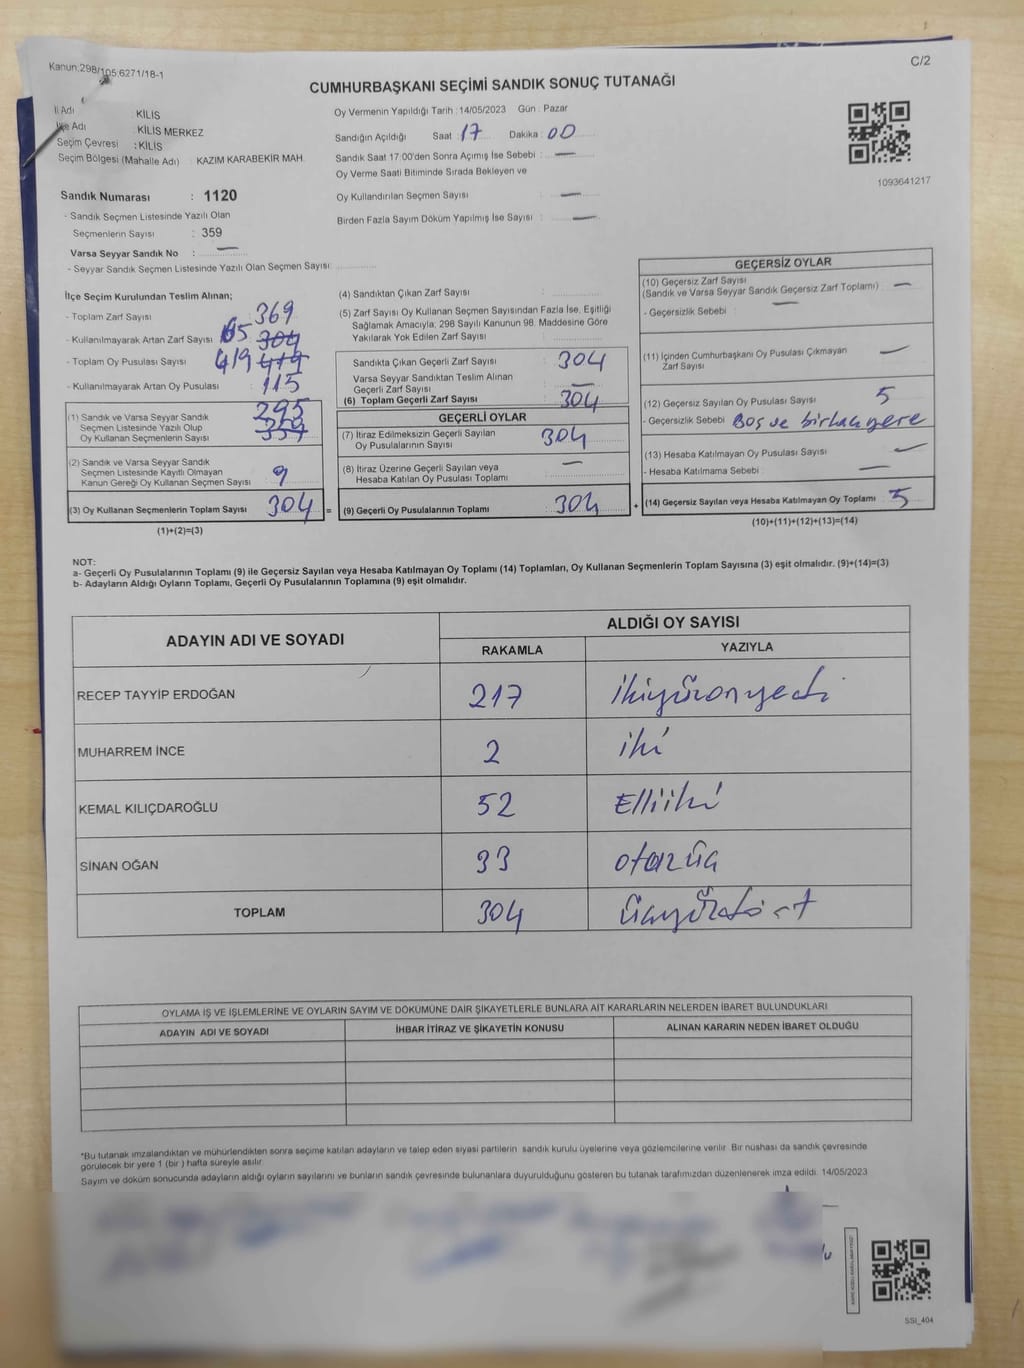 Kanun:298/105;6271/18-1
C/2
CUMHURBAŞKANI SEÇİMİ SANDIK SONUÇ TUTANAĞI
İl Adı : KİLİS
İlçe Adı : KİLİS MERKEZ
Seçim Çevresi : KİLİS
Seçim Bölgesi (Mahalle Adı) : KAZIM KARABEKİR MAH.
Oy Vermenin Yapıldığı Tarih : 14/05/2023 Gün : Pazar
Sandığın Açıldığı Saat : 17 Dakika : 00
Sandık Saat 17:00'den Sonra Açımış İse Sebebi : —
Oy Verme Saati Bitiminde Sırada Bekleyen ve
Oy Kullandırılan Seçmen Sayısı : —
Birden Fazla Sayım Döküm Yapılmış İse Sayısı : —
1093641217
Sandık Numarası : 1120
- Sandık Seçmen Listesinde Yazılı Olan
Seçmenlerin Sayısı : 359
Varsa Seyyar Sandık No : —
- Seyyar Sandık Seçmen Listesinde Yazılı Olan Seçmen Sayısı:
İlçe Seçim Kurulundan Teslim Alınan;
- Toplam Zarf Sayısı : 369
- Kullanılmayarak Artan Zarf Sayısı : 65 304
- Toplam Oy Pusulası Sayısı : 419 419
- Kullanılmayarak Artan Oy Pusulası : 115
(1) Sandık ve Varsa Seyyar Sandık
Seçmen Listesinde Yazılı Olup
Oy Kullanan Seçmenlerin Sayısı
295
(2) Sandık ve Varsa Seyyar Sandık
Seçmen Listesinde Kayıtlı Olmayan
Kanun Gereği Oy Kullanan Seçmen Sayısı 9
(3) Oy Kullanan Seçmenlerin Toplam Sayısı 304 =
(1)+(2)=(3)
(4) Sandıktan Çıkan Zarf Sayısı :
(5) Zarf Sayısı Oy Kullanan Seçmen Sayısından Fazla İse, Eşitliği
Sağlamak Amacıyla, 298 Sayılı Kanunun 98. Maddesine Göre
Yakılarak Yok Edilen Zarf Sayısı :
Sandıkta Çıkan Geçerli Zarf Sayısı 304
Varsa Seyyar Sandıktan Teslim Alınan
Geçerli Zarf Sayısı —
(6) Toplam Geçerli Zarf Sayısı 304
GEÇERLİ OYLAR
(7) İtiraz Edilmeksizin Geçerli Sayılan
Oy Pusulalarının Sayısı 304
(8) İtiraz Üzerine Geçerli Sayılan veya
Hesaba Katılan Oy Pusulası Toplamı —
(9) Geçerli Oy Pusulalarının Toplamı 304 +
GEÇERSİZ OYLAR
(10) Geçersiz Zarf Sayısı
(Sandık ve Varsa Seyyar Sandık Geçersiz Zarf Toplamı) : —
- Geçersizlik Sebebi : —
(11) İçinden Cumhurbaşkanı Oy Pusulası Çıkmayan
Zarf Sayısı —
(12) Geçersiz Sayılan Oy Pusulası Sayısı 5
- Geçersizlik Sebebi Boş ve birkaç yere
(13) Hesaba Katılmayan Oy Pusulası Sayısı —
- Hesaba Katılmama Sebebi : —
(14) Geçersiz Sayılan veya Hesaba Katılmayan Oy Toplamı 5
(10)+(11)+(12)+(13)=(14)
NOT:
a- Geçerli Oy Pusulalarının Toplamı (9) ile Geçersiz Sayılan veya Hesaba Katılmayan Oy Toplamı (14) Toplamları, Oy Kullanan Seçmenlerin Toplam Sayısına (3) eşit olmalıdır. (9)+(14)=(3)
b- Adayların Aldığı Oyların Toplamı, Geçerli Oy Pusulalarının Toplamına (9) eşit olmalıdır.
ADAYIN ADI VE SOYADI ALDIĞI OY SAYISI
RAKAMLA YAZIYLA
RECEP TAYYİP ERDOĞAN 217 ikiyüzonyedi
MUHARREM İNCE 2 iki
KEMAL KILIÇDAROĞLU 52 Elliiki
SİNAN OĞAN 33 otuzüç
TOPLAM 304 üçyüzdört
OYLAMA İŞ VE İŞLEMLERİNE VE OYLARIN SAYIM VE DÖKÜMÜNE DAİR ŞİKAYETLERLE BUNLARA AİT KARARLARIN NELERDEN İBARET BULUNDUKLARI
ADAYIN ADI VE SOYADI İHBAR İTİRAZ VE ŞİKAYETİN KONUSU ALINAN KARARIN NEDEN İBARET OLDUĞU
*Bu tutanak imzalandıktan ve mühürlendikten sonra seçime katılan adayların ve talep eden siyasi partilerin sandık kurulu üyelerine veya gözlemcilerine verilir. Bir nüshası da sandık çevresinde
görülecek bir yere 1 (bir) hafta süreyle asılır.
Sayım ve döküm sonucunda adayların aldığı oyların sayılarını ve bunların sandık çevresinde bulunanlara duyurulduğunu gösteren bu tutanak tarafımızdan düzenlenerek imza edildi. 14/05/2023
SSI_404